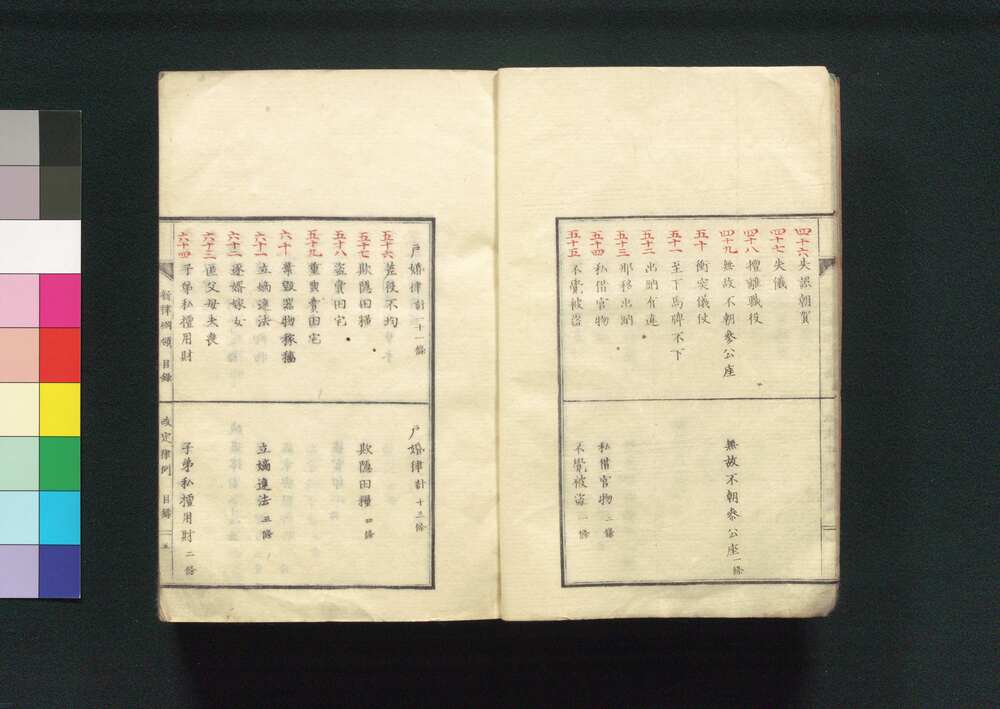 四十六 失誤朝賀
四十七 失儀
四十八 擅離職役
四十九 無故不朝參公座
五十 衝突儀仗
五十一 至下馬牌不下
五十二 出納有違
五十三 那移出納
五十四 私借官物
五十五 不覺被盜
無故不朝參公座 一條
私借官物 二條
不覺被盜 一條
戶婚律 計二十一條
五十六 差役不均
五十七 欺隱田糧
五十八 盜賣田宅
五十九 重典賣田宅
六十 棄毀器物稼穡
六十一 立嫡違法
六十二 逐婿嫁女
六十三 匿父母夫喪
六十四 子弟私擅用財
戶婚律 計十三條
欺隱田糧 四條
立嫡違法 五條
子弟私擅用財 二條
新律綱領 目錄
改定律例 目錄 五